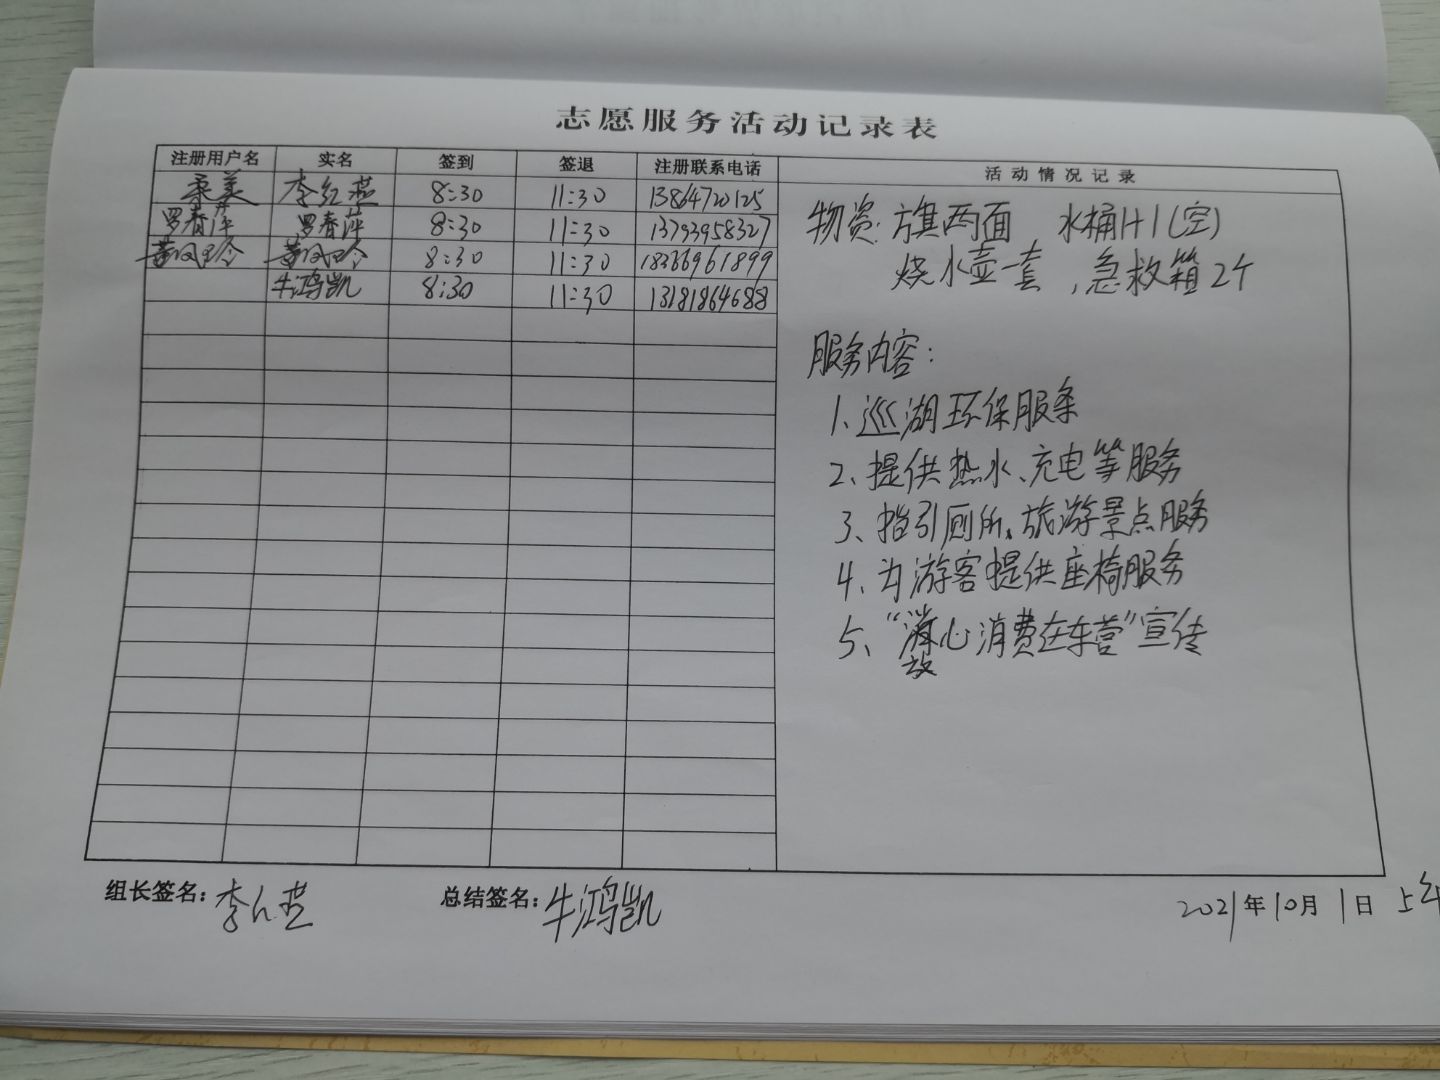 志愿服务活动记录表
注册用户名 实名 签到 签退 注册联系电话 活动情况记录
柔美 李红燕 8:30 11:30 13864720125
罗春萍 罗春萍 8:30 11:30 13793958327
黄凤玲 黄凤玲 8:30 11:30 18366961899
牛鸿凯 8:30 11:30 13181864688
物资: 旗两面 水桶1+1(空)
烧水壶一套,急救箱2个
服务内容:
1、巡湖环保服务
2、提供热水、充电等服务
3、指引厕所、旅游景点服务
4、为游客提供座椅服务
5、“放心消费在车营”宣传
组长签名: 李红燕 总结签名: 牛鸿凯 2021年10月1日 上午